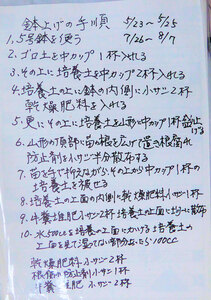 鉢上げの手順 5/23〜5/25
7/26〜8/7
1、5号鉢を使う
2、ゴロ土を中カップ1杯入れる
3、その上に培養土を中カップ2杯入れる
4、培養土の上に鉢の内側に小サジ2杯
乾燥肥料を入れる
5、更にその上に培養土を山形に中カップ1杯盛り上げる
6、山形の頂部に苗の根を広げて置き根腐れ
防止剤を小サジ半分散布する
7、苗を手で押えながらその上から中カップ1杯の
培養土を被せる
8、培養土の上面の内側に乾燥肥料小サジ1杯
9、牛糞堆肥小サジ2杯培養土の上面に散布
10、水やりは培養土の上面にかける 培養土の
上面を見て湿ってない部分なら100cc
乾燥肥料 小サジ2杯
根腐れ防止剤小サジ1杯
牛糞堆肥 小サジ2杯